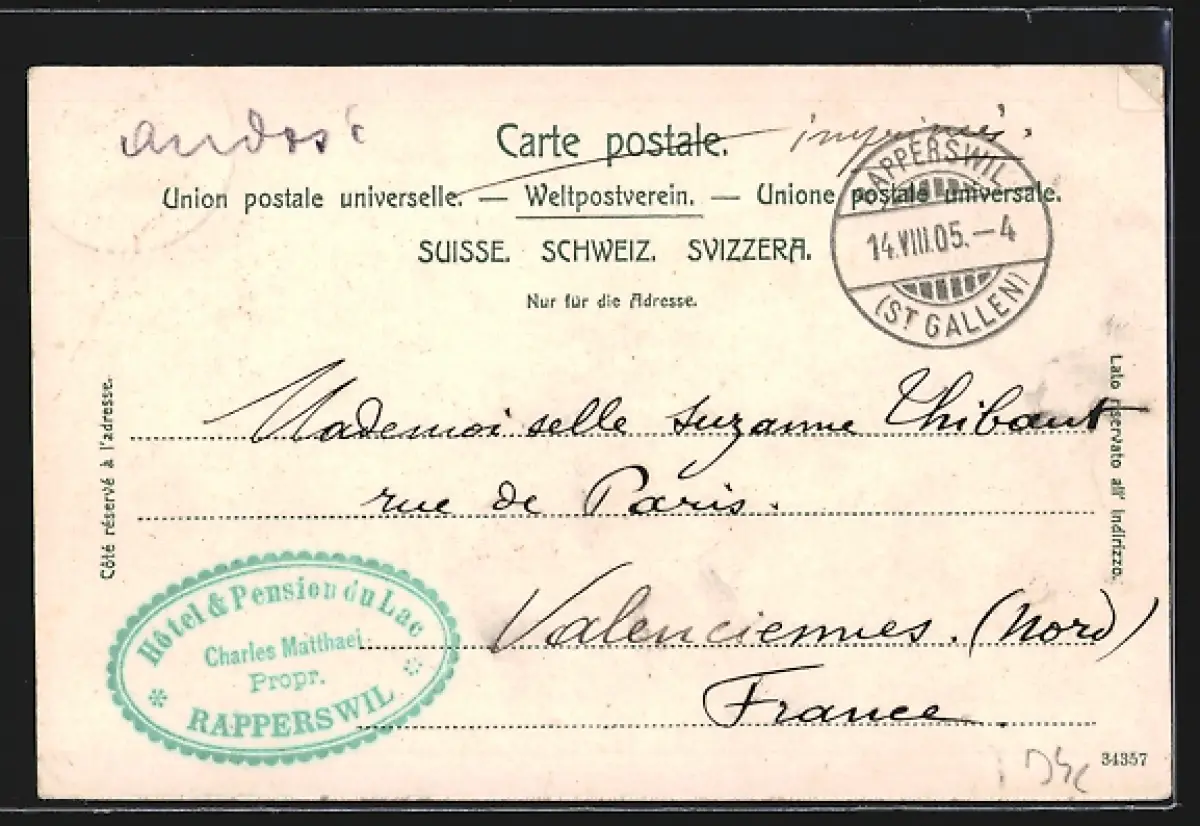 Carte postale. imprimé.
Union postale universelle. — Weltpostverein. — Unione postale universale.
SUISSE. SCHWEIZ. SVIZZERA.
Nur für die Adresse.
RAPPERSWIL
14.VIII.05.–4
(ST GALLEN)
Côté réservé à l'adresse.
Lato riservato all' indirizzo.
Mademoiselle Suzanne Thibaut
rue de Paris.
Valenciennes. (Nord)
France.
Hôtel & Pension du Lac
Charles Matthaei
Propr.
* RAPPERSWIL *
34357